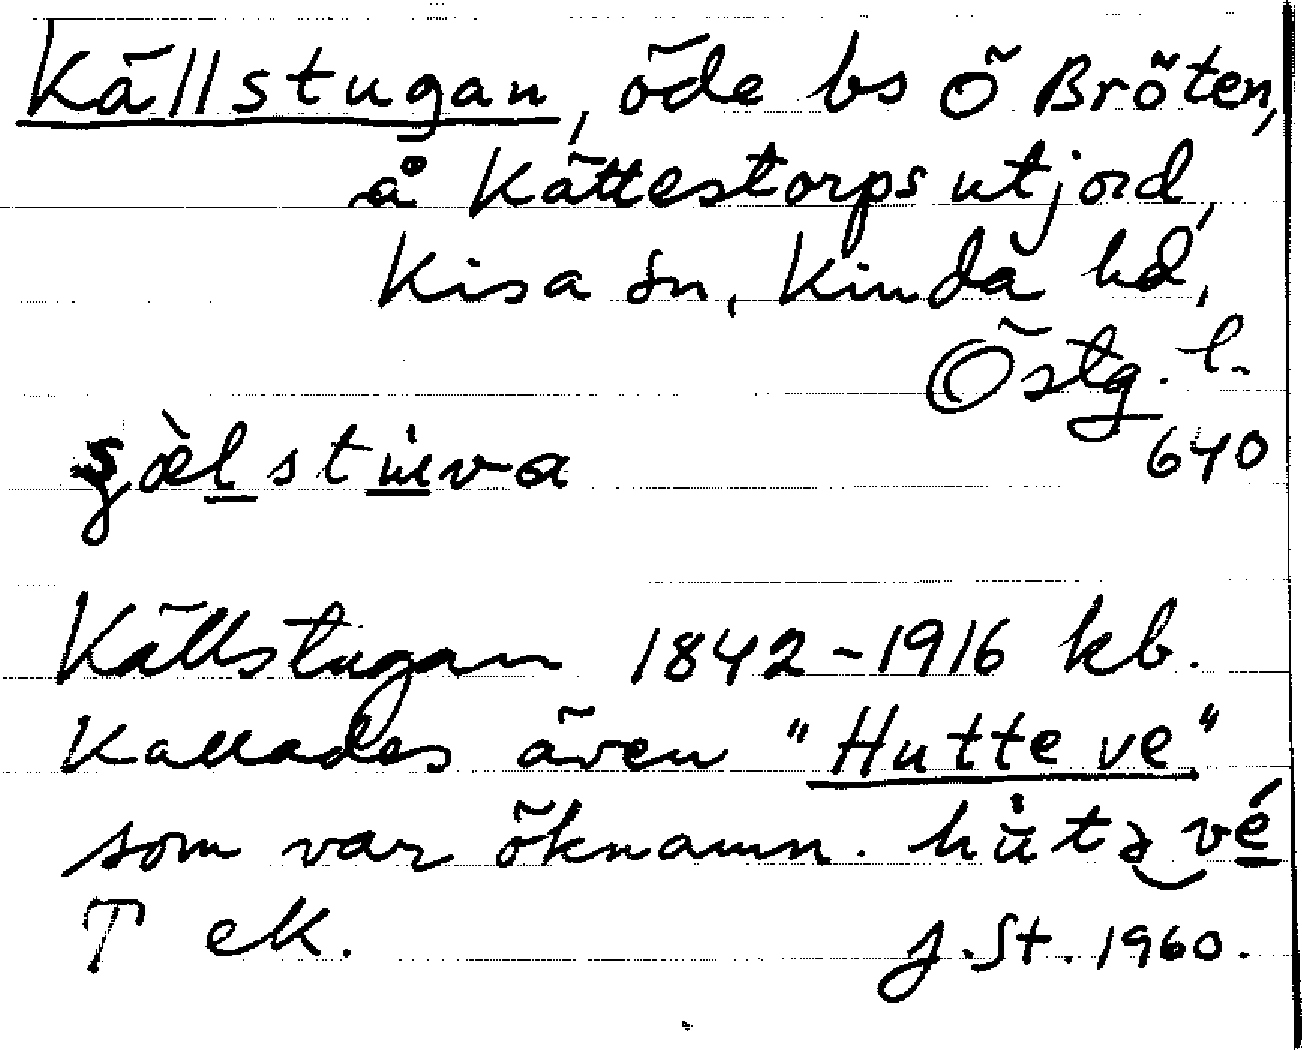 Källstugan, öde bs Ö Bröten,
å Kättestorps utjord,
Kisa sn, Kinda hd,
Östg. l.
640
Källstugan 1842-1916 kb.
Kallades även "Hutte ve"
som var öknamn. hùtə vé
T ek. J. St. 1960.